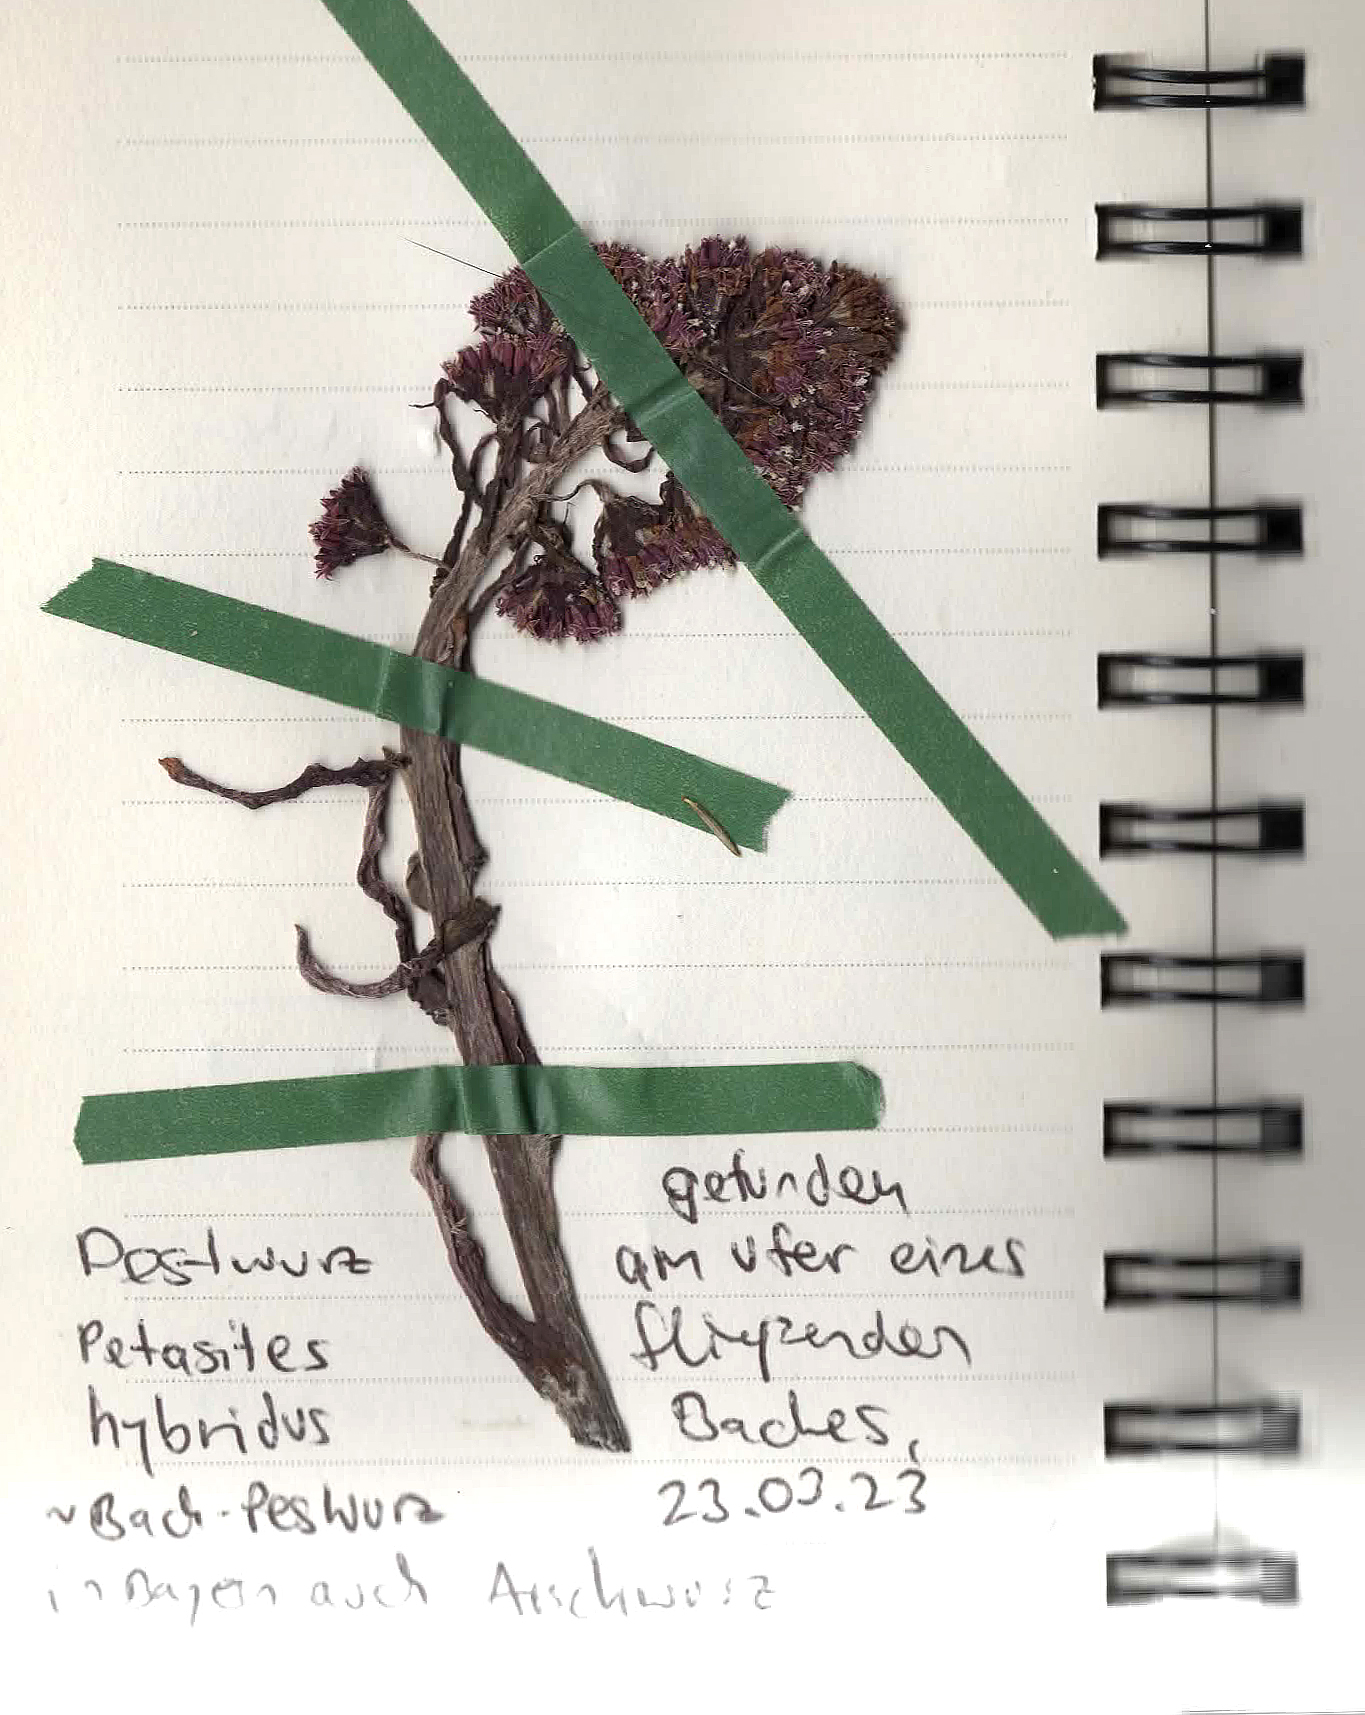 Pestwurz
Petasites
hybridus
~Bach-Pestwurz
in Bayern auch Arschwurz
gefunden
am Ufer eines
fließenden
Baches,
23.03.23